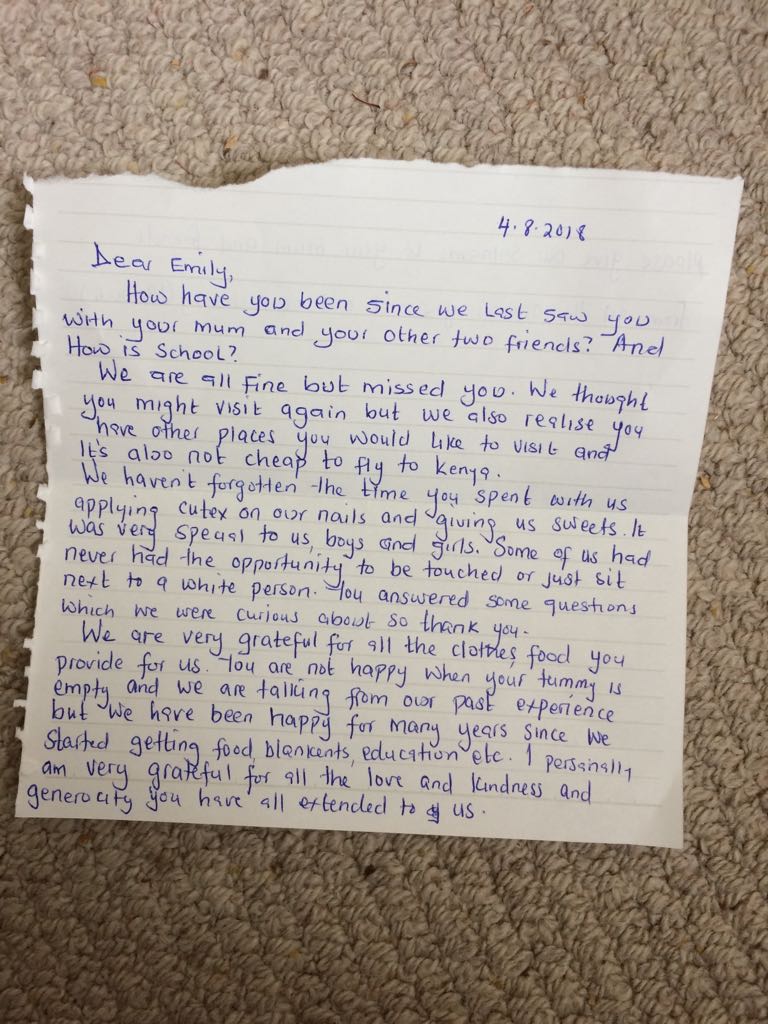 4.8.2018
Dear Emily,
How have you been since we last saw you
with your mum and your other two friends? And
How is School?
We are all fine but missed you. We thought
you might visit again but we also realise you
have other places you would like to visit and
It's also not cheap to fly to Kenya.
We haven't forgotten the time you spent with us
applying cutex on our nails and giving us sweets. It
was very special to us, boys and girls. Some of us had
never had the opportunity to be touched or just sit
next to a white person. You answered some questions
which we were curious about so thank you.
We are very grateful for all the clothes, food you
provide for us. You are not happy when your tummy is
empty and we are talking from our past experience
but we have been happy for many years since we
started getting food, blankents, education etc. I personally
am very grateful for all the love and kindness and
generocity you have all extended to us.